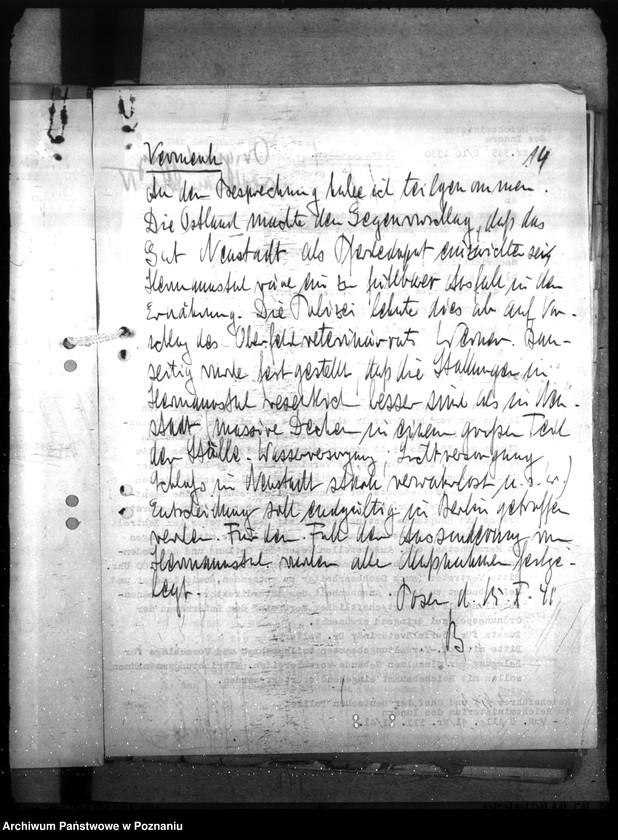 14
Vermerk
An der Besprechung habe ich teilgenommen.
Die Ostland machte den Gegenvorschlag, daß das
Gut Neustadt als Pferdegut einzurichten sei,
Hermannstal wäre ein zu fühlbarer Ausfall in der
Ernährung. Die Polizei lehnte dies ab auf Vor-
schlag des Oberfeldveterinärrats Werner.
seitig wurde festgestellt, daß die Stallungen in
Hermannstal wesentlich besser sind als in Neu-
stadt (massive Decken in einem großen Teil
der Ställe, Wasserversorgung, Lichtversorgung,
Schloß in Neustadt stark verwahrlost u.s.w.)
Entscheidung soll endgültig in Berlin getroffen
werden. Für den Fall der Aussonderung von
Hermannstal wurden alle Maßnahmen festge-
legt.
Posen, d. 15. X. 41
B
Archiwum Państwowe w Poznaniu